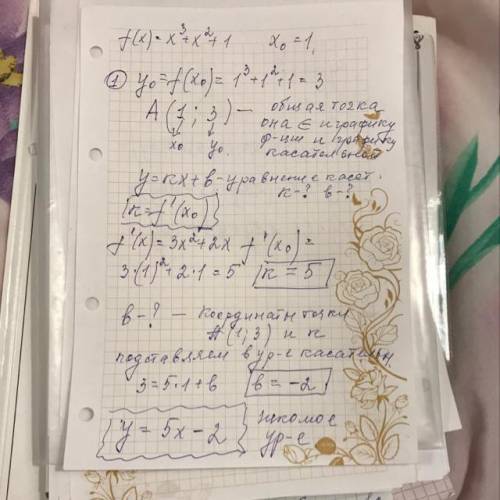 f(x) = x³+x²+1 x₀=1,
① y₀=f(x₀)= 1³+1²+1=3
A(1; 3) — общая точка
она ∈ и графику
x₀ y₀ ф-ции и графику
касательной
y=kx+b - уравнение касат.
k-? b-?
k=f'(x₀)
f'(x)=3x²+2x f'(x₀)=
3·(1)²+2·1=5 k=5
b-? — координаты точки
A(1;3) и k
подставляем в ур-е касательн
3=5·1+b b=-2
y=5x-2 искомое
ур-е